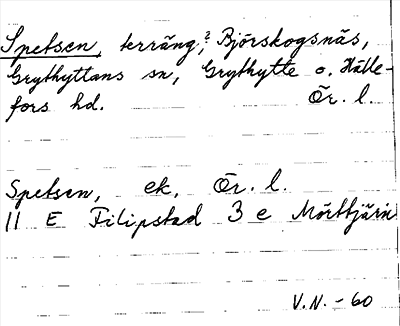 Spetsen, terräng, ? Björskogsnäs,
Grythyttans sn, Grythytte o. Hälle-
fors hd. Ör. l.
Spetsen, ek, Ör. l.
11 E Filipstad 3 e Mörttjärn
V.N. - 60